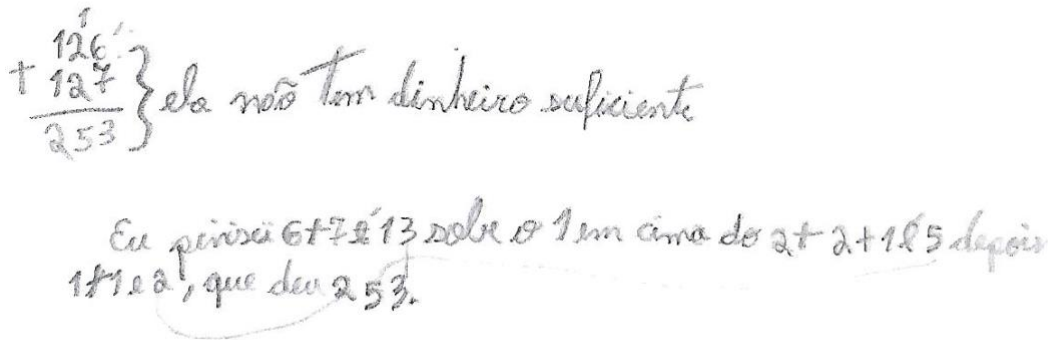 1
126
+ 127 } ela não tem dinheiro suficiente
253
Eu pensei 6+7 é 13 sobe o 1 em cima do 2+2+1 é 5 depois
1+1 e 2, que deu 253.